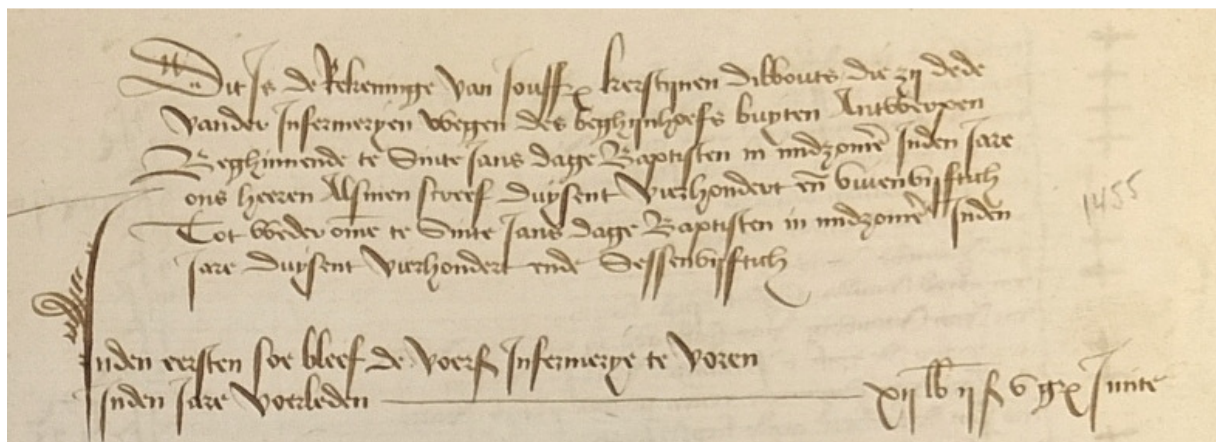 Dit Is de Rekeninge van Jouffr kerstijnen dibbouts die zij dede
vander Infermeryen wegen des beghijnhoefs buyten Antwerpen
Beghinnende te Sinte Jans dage Baptisten in midzomer Inden Jare
ons heeren Alsmen screef duysent vierhondert en vivenvijftich
Tot weder ome te Sinte Jans dage Baptisten in midzomer Inden
Jare duysent vierhondert ende Sessenvijftich
1455
Inden eersten soe bleef de voers Infermerye te voren
Inden Jare voerleden xij lb ij s v gr